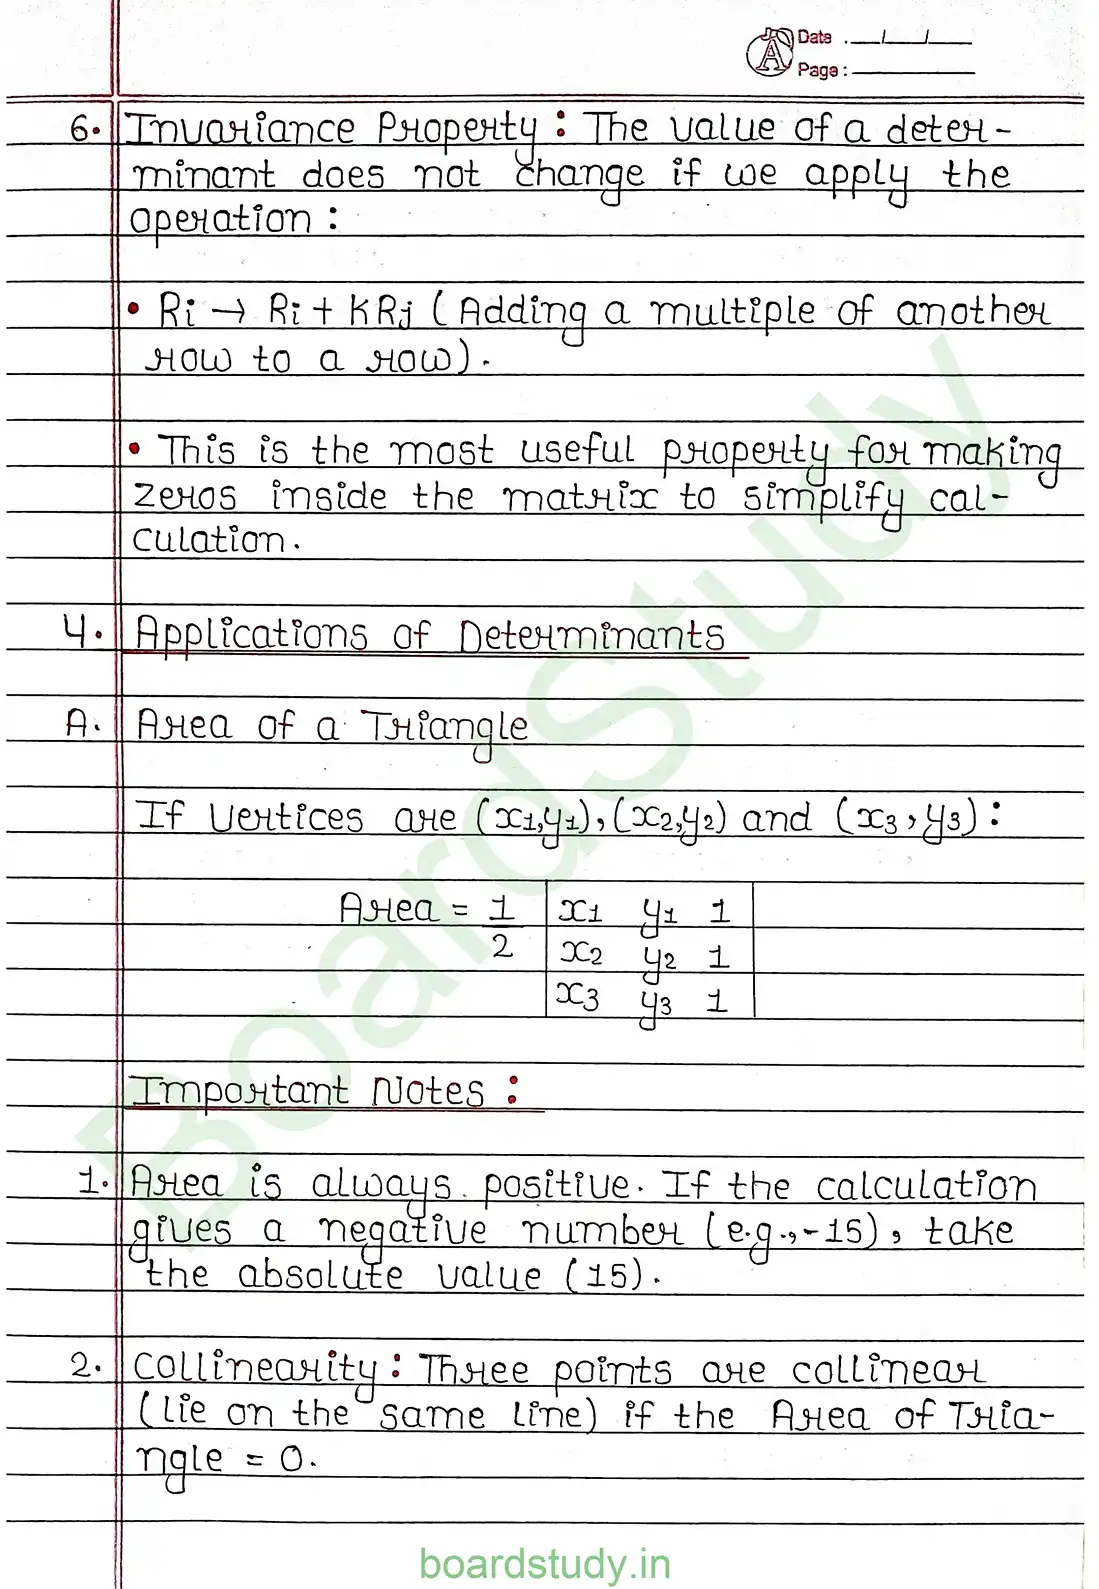 Date .__/__/__
Page : ______
6. Invariance Property : The value of a deter-
minant does not change if we apply the
operation :
• Ri → Ri + KRj ( Adding a multiple of another
row to a row) .
• This is the most useful property for making
zeros inside the matrix to simplify cal-
culation .
4. Applications of Determinants
A. Area of a Triangle
If vertices are (x1,y1), (x2,y2) and (x3,y3) :
Area = 1/2 | x1 y1 1 |
| x2 y2 1 |
| x3 y3 1 |
Important Notes :
1. Area is always positive. If the calculation
gives a negative number (e.g., -15) , take
the absolute value (15) .
2. Collinearity : Three points are collinear
(lie on the same line) if the Area of Tria-
ngle = 0.
BoardStudy
boardstudy.in